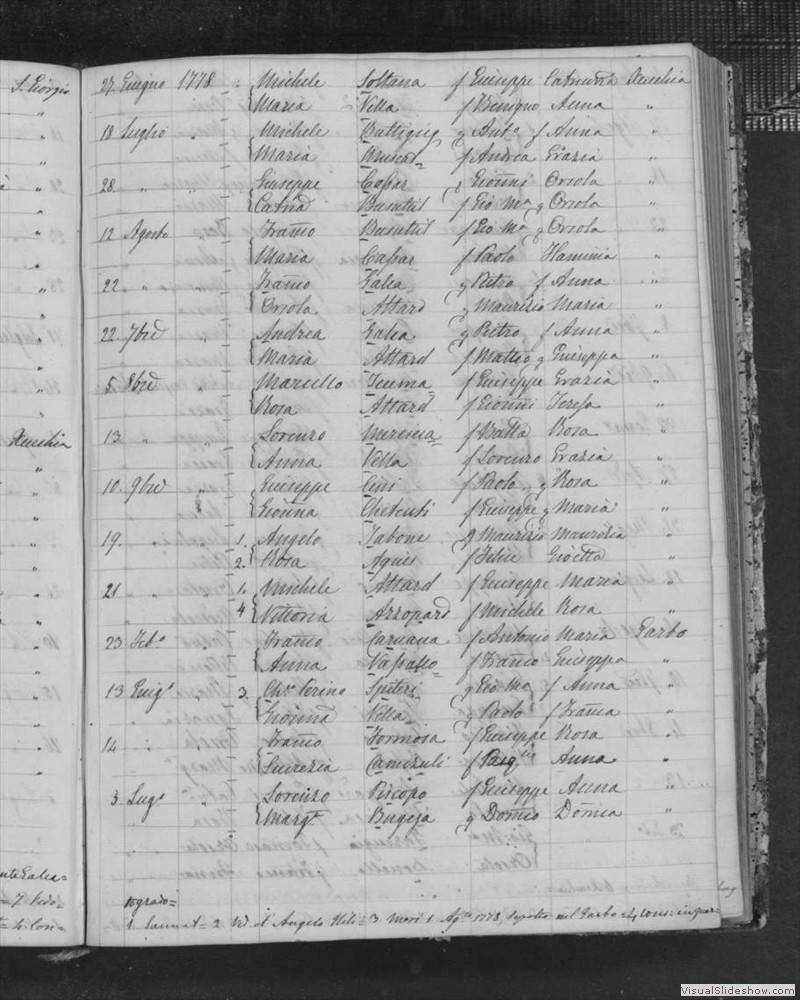 S. Giorgio 27. Giugno 1778 Michele Soltana f Giuseppe Catarina Xeuchia
Maria Vella f Benigno Anna "
18 Luglio " Michele Buttigieg g Anto f Anna "
Maria Muscat f Andrea Grazia "
28. " " Giuseppe Capar g Gionni Orsola "
Catna Busuttil f Gio Ma g Orsola "
12 Agosto " Franco Busuttil f Gio Ma g Orsola "
Maria Capar f Paolo Flaminia "
22 " " Franco Galea g Pietro f Anna "
Orsola Attard g Maurizio Maria "
22 7bre " Andrea Galea g Pietro f Anna "
Maria Attard f Matteo g Giuseppa "
5 8bre " Marcello Teuma f Giuseppe Grazia "
Rosa Attard f Gionni Teresa "
Xeuchia 13 " " Lorenzo Mercieca f Batta Rosa "
Anna Vella f Lorenzo Grazia "
10. 9bre " Giuseppe Cini f Paolo g Rosa "
Gionna Chetcuti f Giuseppe g Maria "
19. " 1. Angelo Tabone g Maurizio Maurizia "
2. Rosa Agius f Felice Gioetta "
21 " " 1. Michele Attard f Giuseppe Maria "
4 Vittoria Azzopard f Michele Rosa "
23 Febo " Franco Caruana f Antonio Maria Garbo
Anna Vassallo f Franco Giuseppa "
13 Giugo " 3. Spiteri g Gio Ma f Anna "
Gionna Vella g Paolo f Franca "
14 " Franco Formosa f Giuseppe Rosa "
Lucrezia Camenzuli f Pasqle Anna "
3 Lugo " Lorenzo Piscopo f Giuseppe Anna "
Margta Bugeja g Domco Domca "
10 grado=
1 Sannat= 2 Vd. d. Angelo = 3 Morì 1 Ago 1778, sepolto nel Garbo